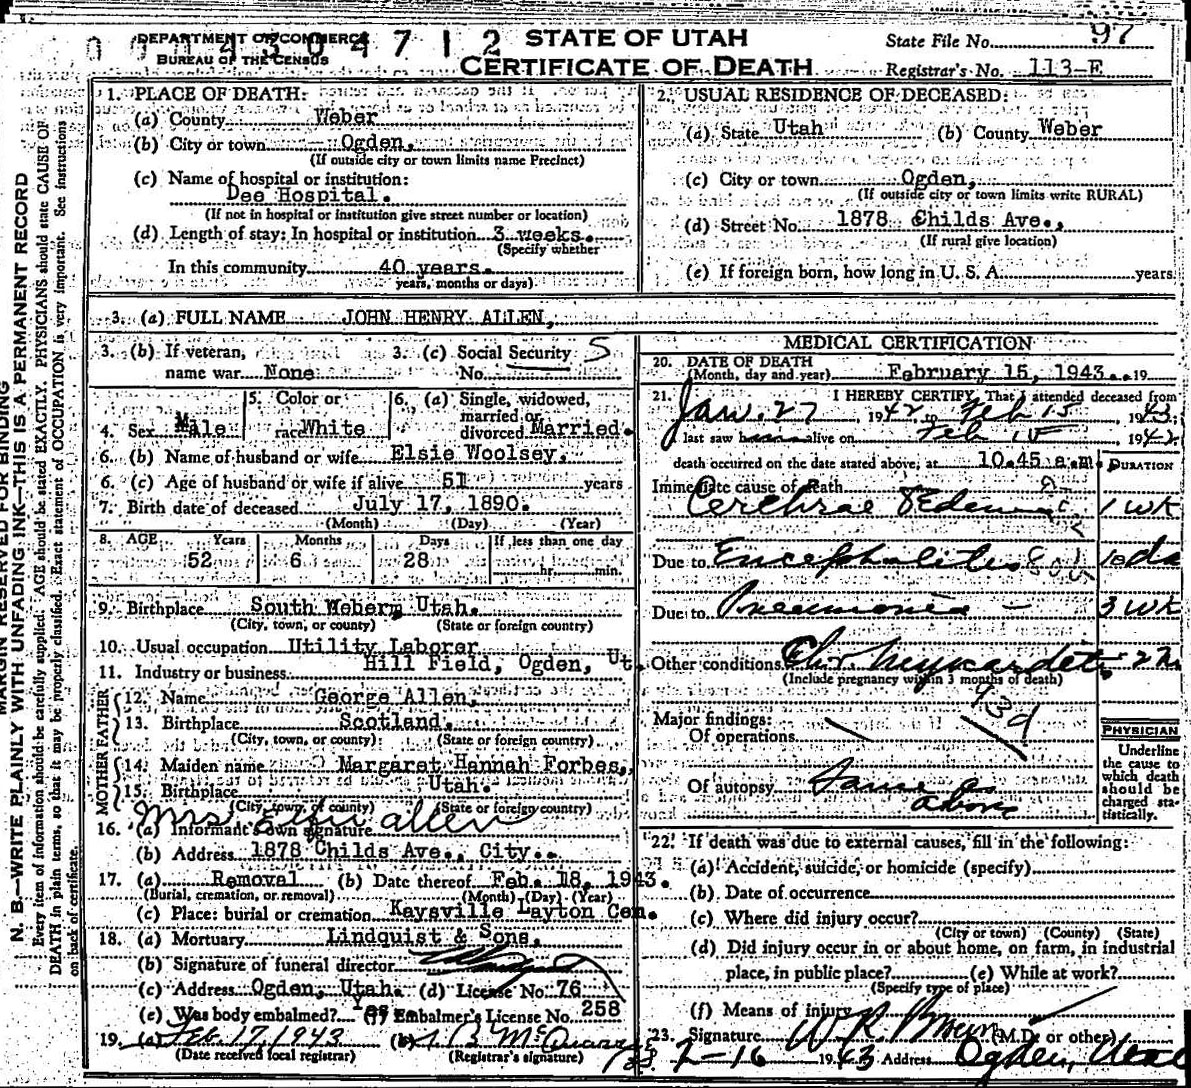 0004304712
DEPARTMENT OF COMMERCE
BUREAU OF THE CENSUS
STATE OF UTAH
CERTIFICATE OF DEATH
State File No. 97
Registrar's No. 113-E
MARGIN RESERVED FOR BINDING
N. B.—WRITE PLAINLY WITH UNFADING INK—THIS IS A PERMANENT RECORD
Every item of information should be carefully supplied. AGE should be stated EXACTLY. PHYSICIANS should state CAUSE OF
DEATH in plain terms, so that it may be properly classified. Exact statement of OCCUPATION is very important. See instructions
on back of certificate.
1. PLACE OF DEATH:
(a) County Weber
(b) City or town Ogden,
(If outside city or town limits name Precinct)
(c) Name of hospital or institution:
Dee Hospital.
(If not in hospital or institution give street number or location)
(d) Length of stay: In hospital or institution 3 weeks.
(Specify whether
In this community 40 years.
years, months or days)
2. USUAL RESIDENCE OF DECEASED:
(a) State Utah (b) County Weber
(c) City or town Ogden,
(If outside city or town limits write RURAL)
(d) Street No. 1878 Childs Ave.,
(If rural give location)
(e) If foreign born, how long in U. S. A. years
3. (a) FULL NAME JOHN HENRY ALLEN,
3. (b) If veteran, 3. (c) Social Security 5
name war None No.
4. Sex Male 5. Color or race White 6. (a) Single, widowed, married or divorced Married.
6. (b) Name of husband or wife Elsie Woolsey.
6. (c) Age of husband or wife if alive 51 years
7. Birth date of deceased July 17, 1890.
(Month) (Day) (Year)
8. AGE Years Months Days If less than one day
52 6 28 hr. min.
9. Birthplace South Weber, Utah.
(City, town, or county) (State or foreign country)
10. Usual occupation Utility Laborer
11. Industry or business Hill Field, Ogden, Ut.
FATHER
12. Name George Allen,
13. Birthplace Scotland.
(City, town, or county) (State or foreign country)
MOTHER
14. Maiden name Margaret Hannah Forbes,
15. Birthplace Utah.
(City, town, or county) (State or foreign country)
16. (a) Informant's own signature Mrs. Elsie Allen
(b) Address 1878 Childs Ave., City.
17. (a) Removal (b) Date thereof Feb. 18, 1943.
(Burial, cremation, or removal) (Month) (Day) (Year)
(c) Place: burial or cremation Kaysville Layton Cem.
18. (a) Mortuary Lindquist & Sons,
(b) Signature of funeral director
(c) Address Ogden, Utah. (d) License No. 76
(e) Was body embalmed? Yes (f) Embalmer's License No. 258
19. (a) Feb. 17, 1943 (b)
(Date received local registrar) (Registrar's signature)
MEDICAL CERTIFICATION
20. DATE OF DEATH
(Month, day and year) February 15, 1943. 19
21. I HEREBY CERTIFY, That I attended deceased from
Jan. 27 1942 to Feb 15 1943
I last saw him alive on Feb 15 1942
death occurred on the date stated above, at 10.45 a.m. DURATION
Immediate cause of death
Cerebral Edema 1 wk
Due to Encephalitis 10 da
Due to Pneumonia - 3 wk
Other conditions Chr. Myocarditis
(Include pregnancy within 3 months of death)
93d
Major findings:
Of operations
Of autopsy Same as
above
PHYSICIAN
Underline
the cause to
which death
should be
charged sta-
tistically.
22. If death was due to external causes, fill in the following:
(a) Accident, suicide, or homicide (specify)
(b) Date of occurrence
(c) Where did injury occur?
(City or town) (County) (State)
(d) Did injury occur in or about home, on farm, in industrial
place, in public place? (e) While at work?
(Specify type of place)
(f) Means of injury
23. Signature W R Brown (M.D. or other)
2-16 1943 Address Ogden, Utah